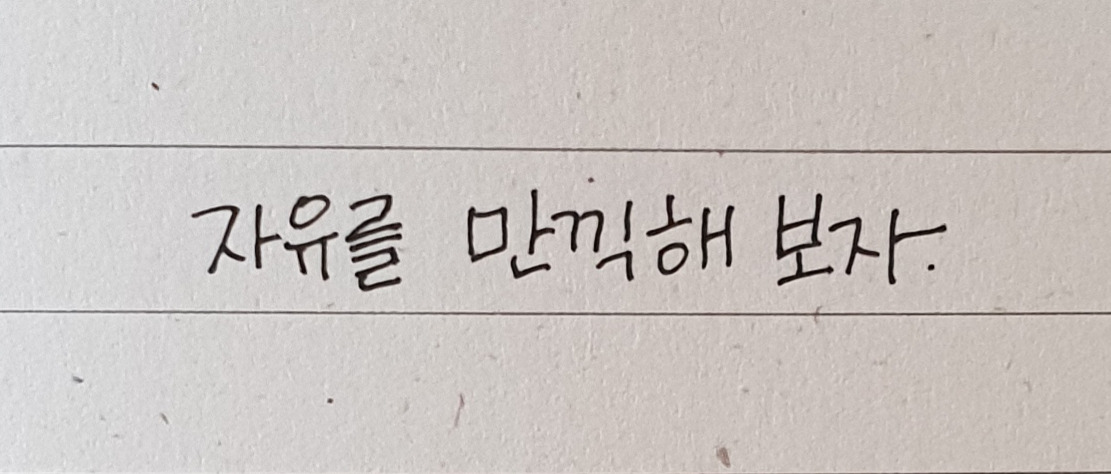 자유를 만끽해 보자.